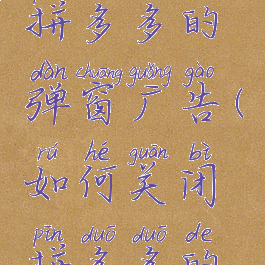 拼多多的
dàn chuāng guǎng gào
弹窗广告(
rú hé guān bì
如何关闭
pīn duō duō de
拼多多的